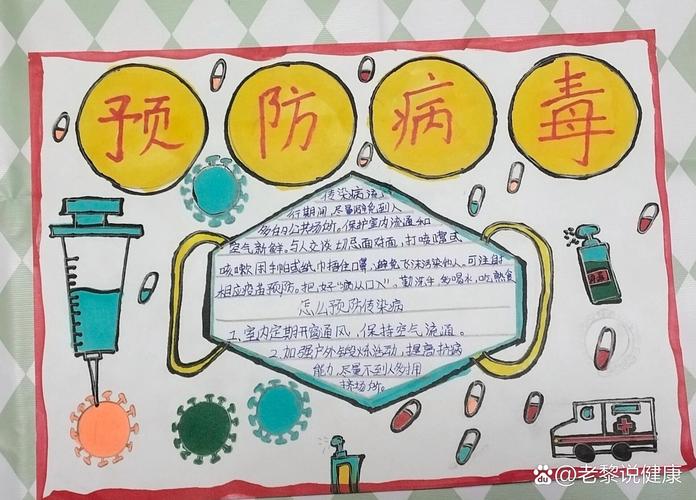 预防病毒
传染病流
行期间,尽量避免到人
多的公共场所。保护室内流通和
空气新鲜。与人交谈切忌面对面,打喷嚏或
咳嗽用手帕或纸巾捂住口鼻,避免飞沫污染他人。可注射
相应疫苗预防。把好“病从口入”,勤洗手多喝水,吃熟食
怎么预防传染病
1、室内定期开窗通风,保持空气流通。
2、加强户外锻炼活动,提高抗病
能力,尽量不到人多拥
挤场所。
消毒
Bai百度 @老黎说健康